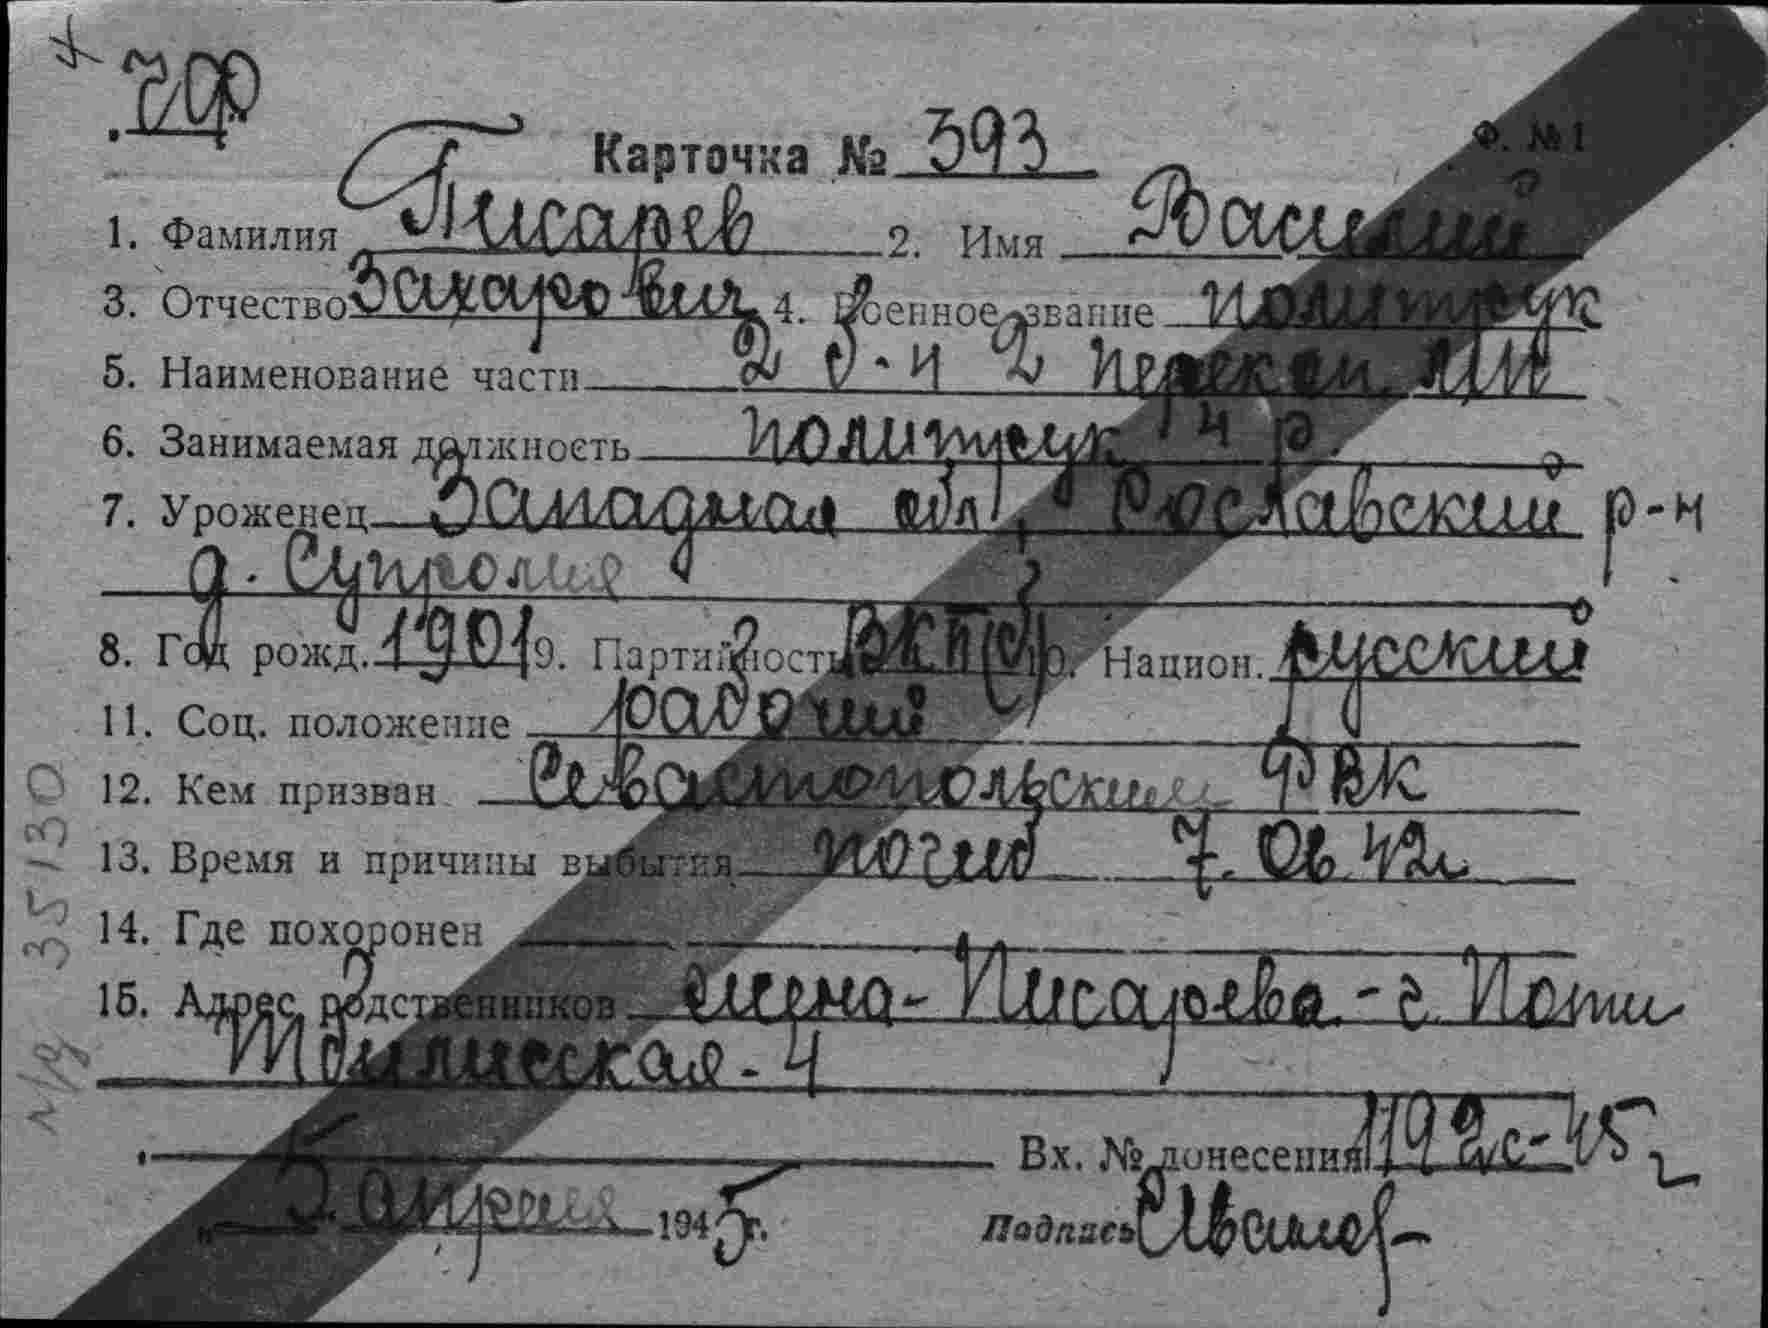 ЧФ
Карточка № 393
Ф. №1
1. Фамилия Писарев 2. Имя Василий
3. Отчество Захарович 4. Военное звание политрук
5. Наименование части 2 б-н 2 Перекоп. ПМП
6. Занимаемая должность политрук 4 р.
7. Уроженец Западная обл., Рославский р-н
д.
8. Год рожд. 1901 9. Партийность ВКП(б) 10. Национ. русский
11. Соц. положение рабочий
12. Кем призван Севастопольским РВК
13. Время и причины выбытия погиб 7.06.42г.
14. Где похоронен
15. Адрес родственников жена - Писарева - г. Поти
Тбилисская - 4
Вх. № донесения 1192с-45г
„ 5 " апреля 1945г. Подпись
35130